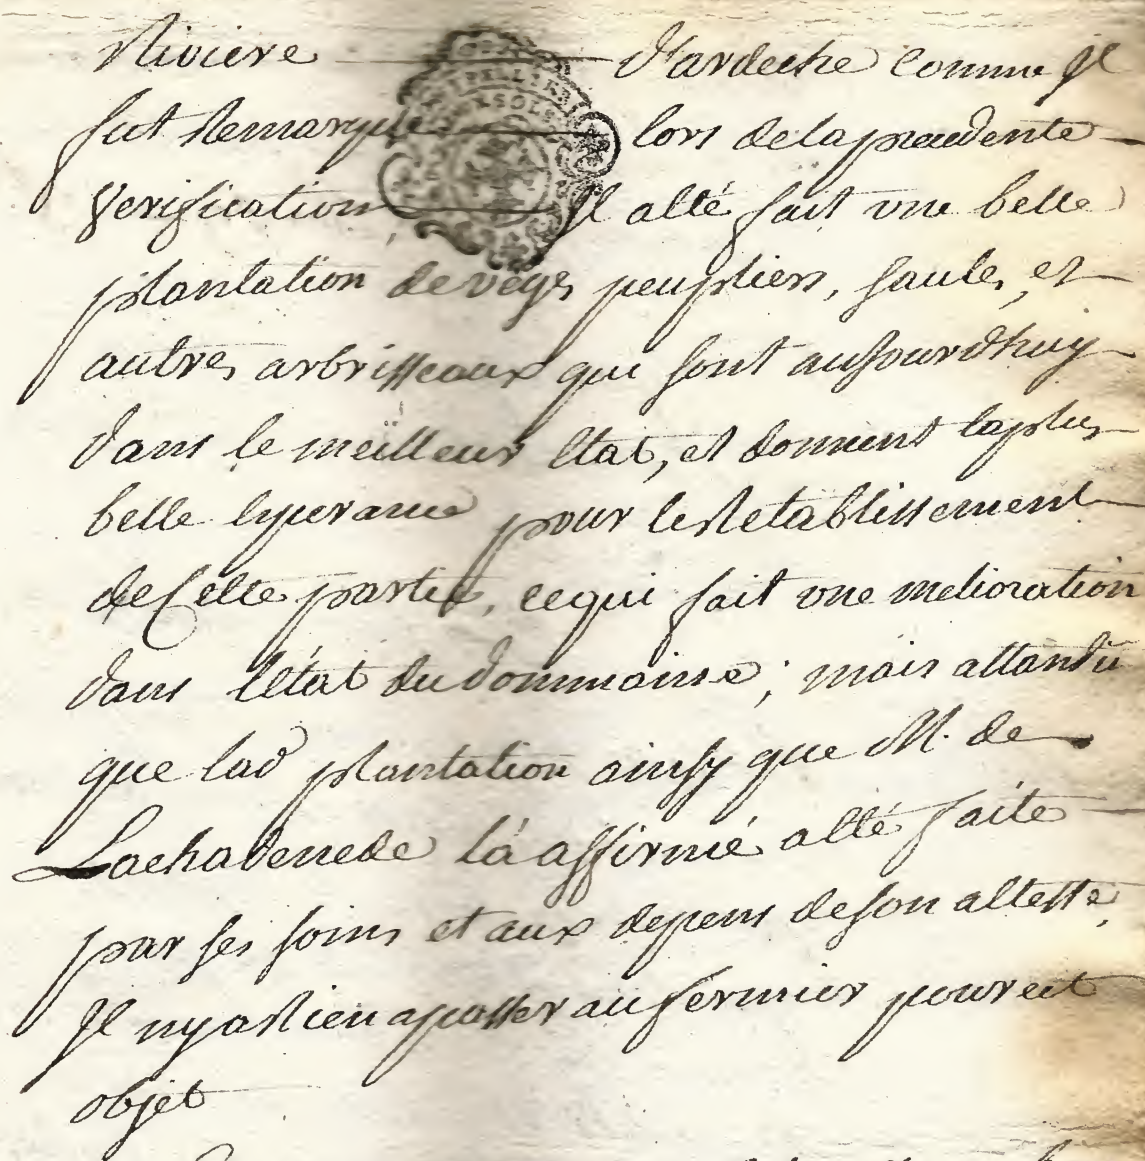 Riviere d'ardeche comme Il
fut Remarqué lors delaprecedente
Verification, Il aété fait une belle
plantation de veges peupliers, saules, et
autres arbrisseaux qui sont aujourdhuy
dans le meilleur état, et donnent laplus
belle esperance pour leRetablissement
deCette partie, cequi fait une melioration
dans létat dudommaine; mais attandu
que lad plantation ainsy que M. de
Lachadenede lá affirmé aété faite
par ses soins et aux depens deson altesse,
Il nyaRien apasser aufermier pour cet
objet